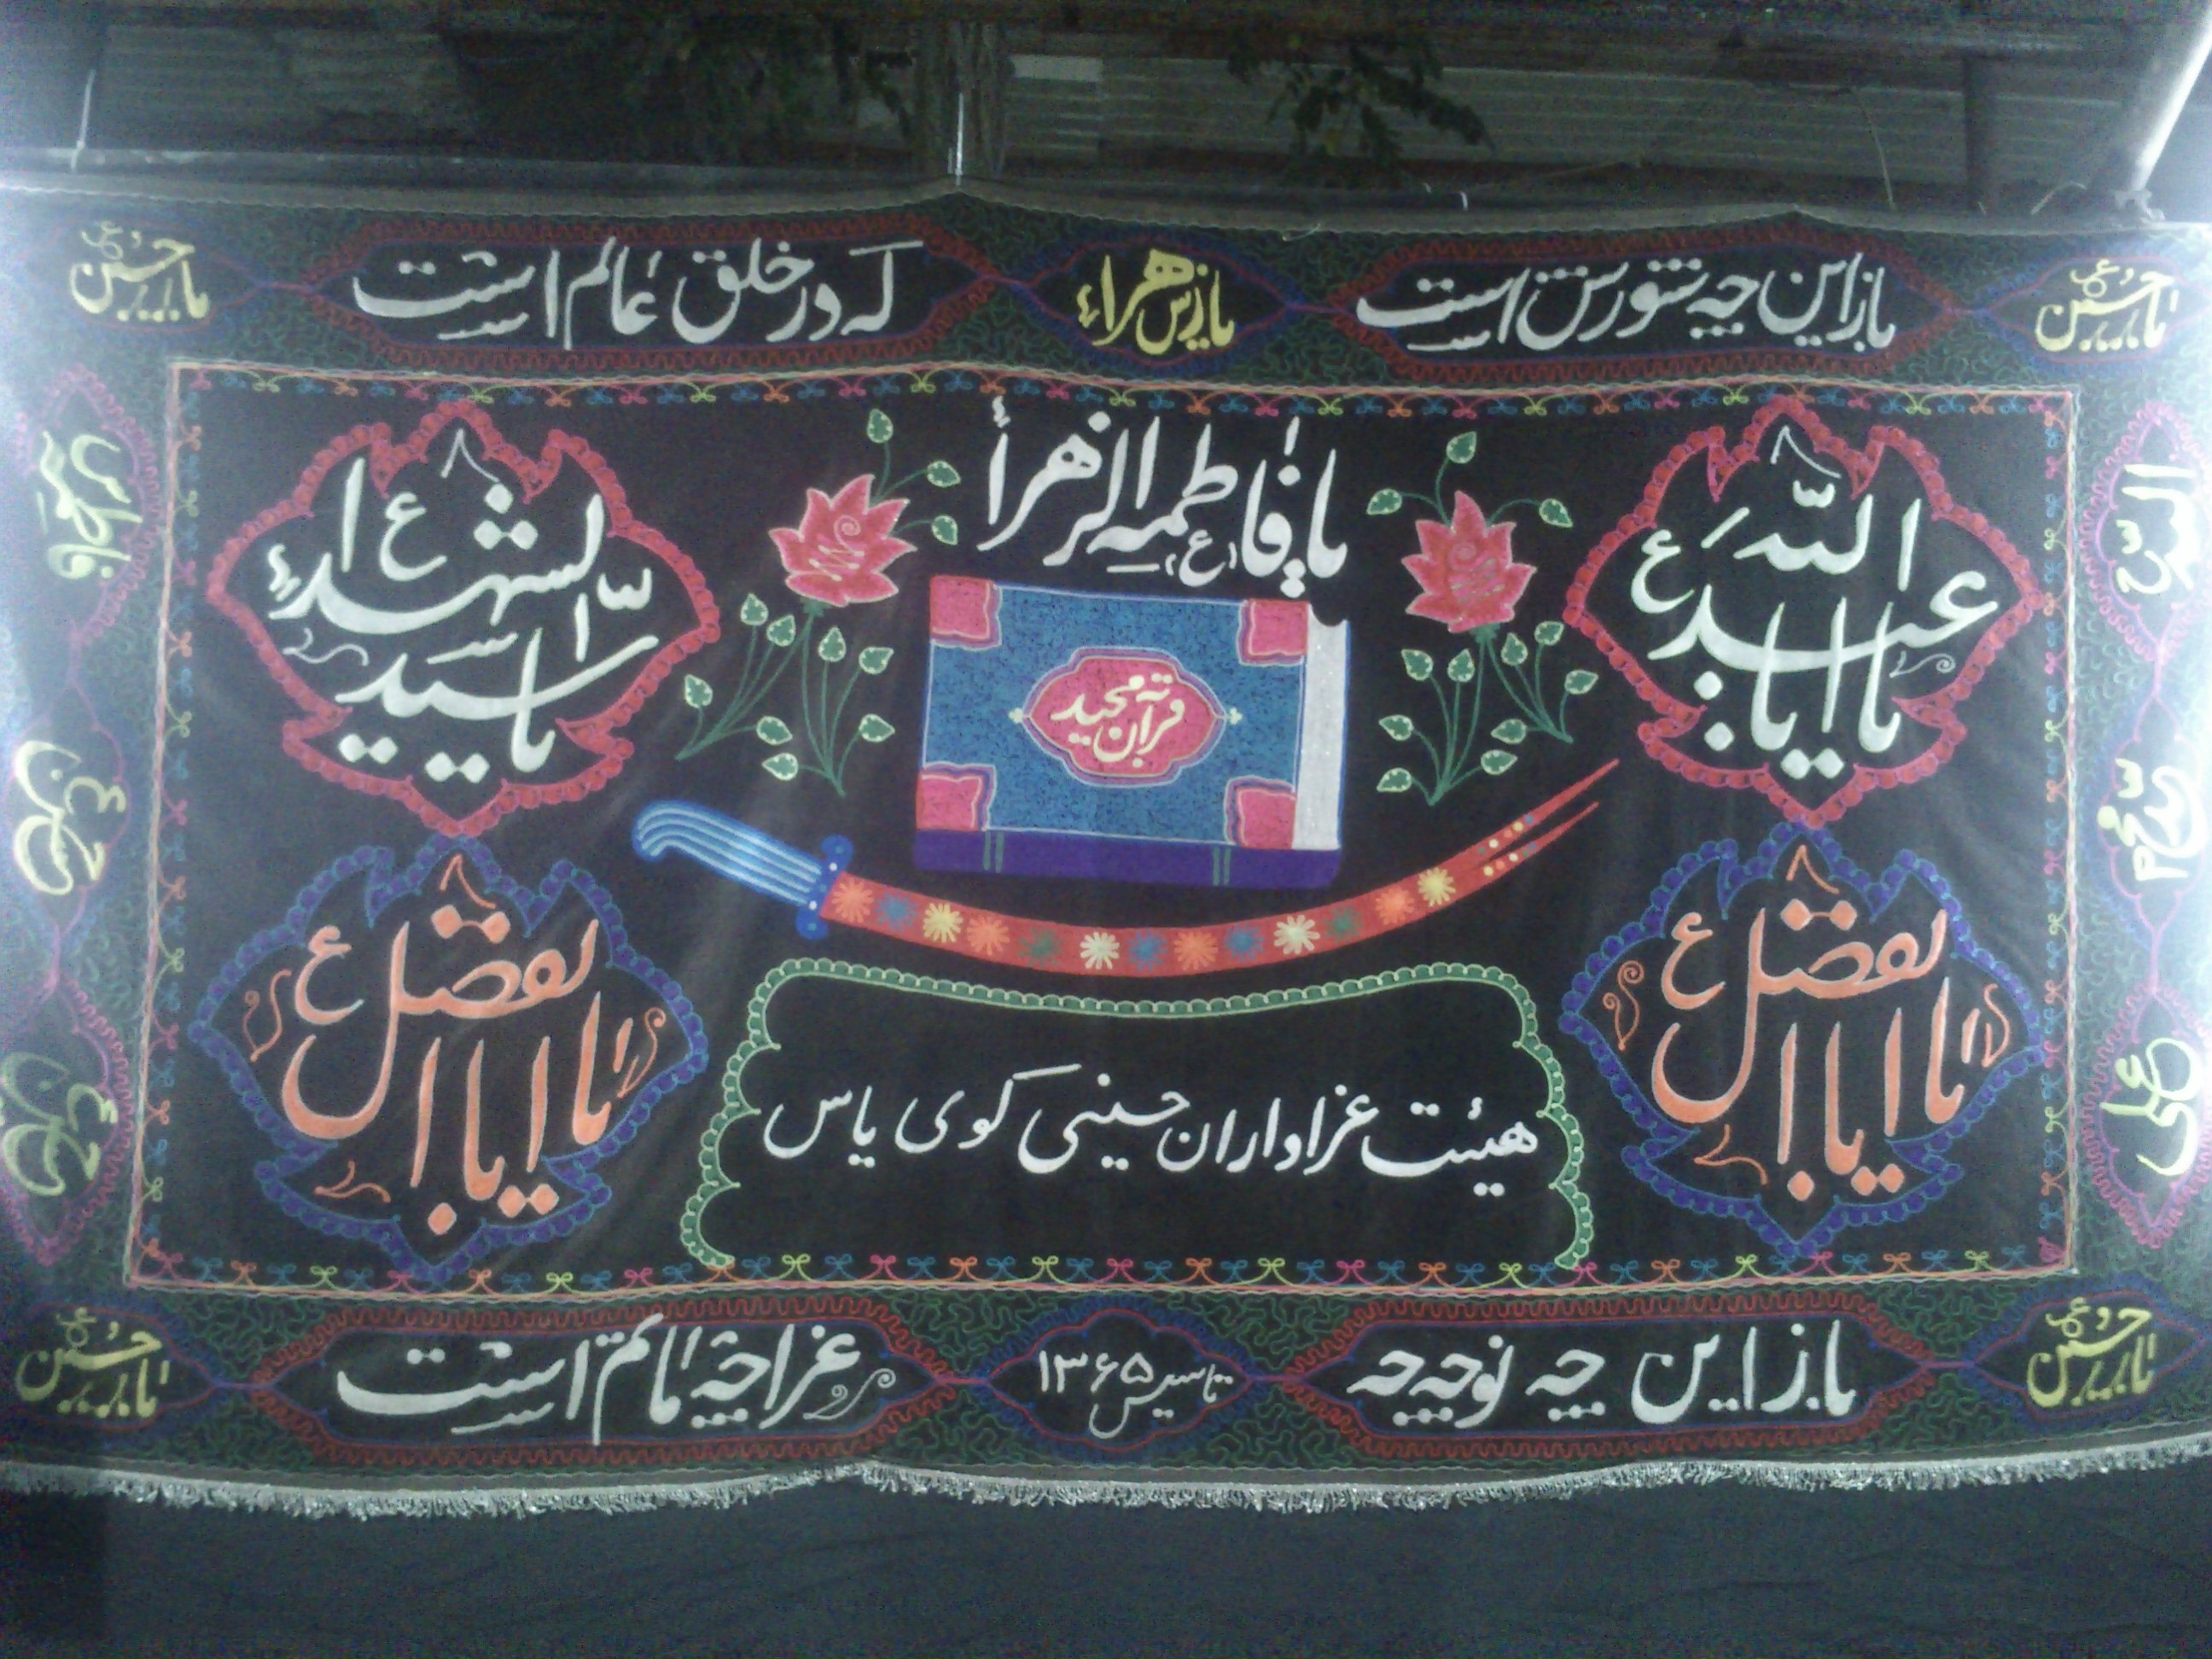 یا حسین ع
باز این چه شورش است
یا زهراء س
که در خلق عالم است
یا حسین ع
یا فاطمه الزهراء (ع)
یا ابا عبدالله ع
یا سیدالشهداء ع
قرآن مجید
یا اباالفضل ع
یا اباالفضل ع
هیئت عزاداران حسینی کوی یاس
الله
محمد
علی
فاطمه
حسن
حسین
یا حسین ع
باز این چه نوحه چه
تاسیس ۱۳۶۵
عزا چه ماتم است
یا حسین ع